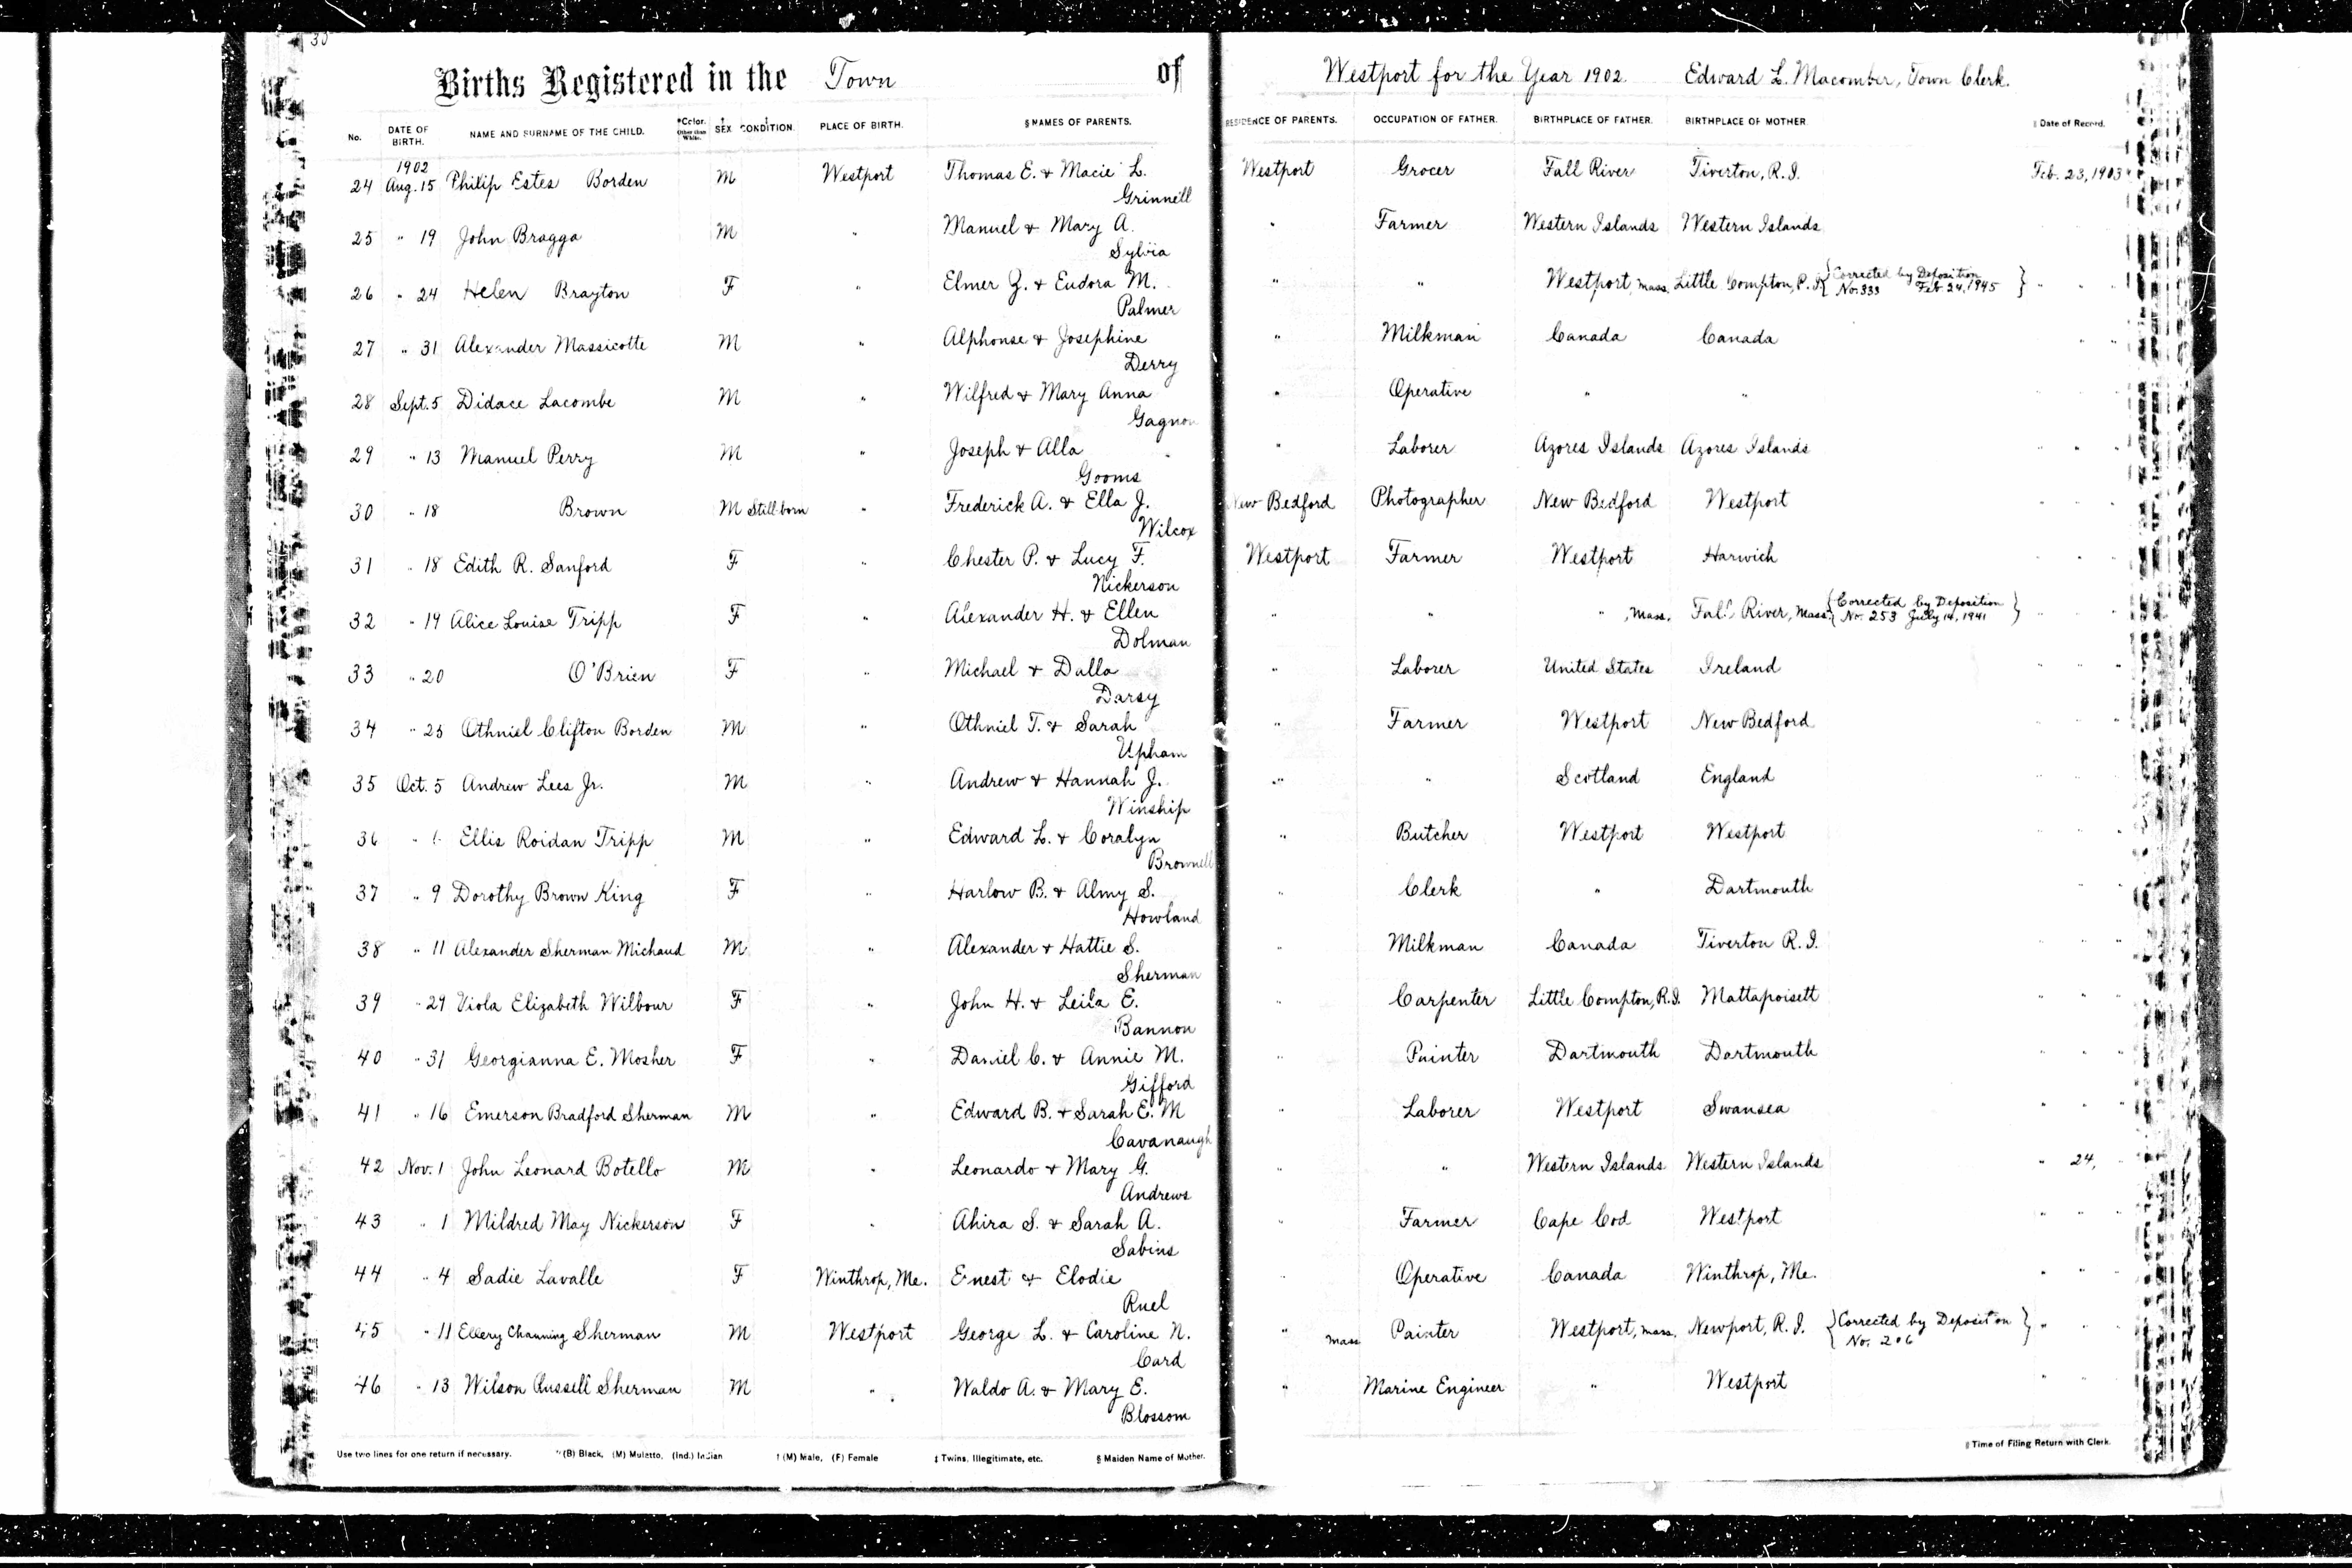 30
Births Registered in the Town of Westport for the Year 1902. Edward L. Macomber, Town Clerk.
No. DATE OF BIRTH. NAME AND SURNAME OF THE CHILD. *Color. Other than White. † SEX ‡ CONDITION. PLACE OF BIRTH. § NAMES OF PARENTS. RESIDENCE OF PARENTS. OCCUPATION OF FATHER. BIRTHPLACE OF FATHER. BIRTHPLACE OF MOTHER. ‖ Date of Record.
1902
24 Aug. 15 Philip Estes Borden M Westport Thomas E. & Macie L. Westport Grocer Fall River Tiverton, R.I. Feb. 23, 1903
Grinnell
25 " 19 John Bragga M " Manuel & Mary A. " Farmer Western Islands Western Islands
Sylvia
26 " 24 Helen Brayton F " Elmer & Eudora M. " " Westport, Mass. Little Compton, R.I. {Corrected by Deposition No. 333 Feb. 24, 1945} " " "
Palmer
27 " 31 Alexander Massicotte M " Alphonse & Josephine " Milkman Canada Canada " "
Derry
28 Sept. 5 Didace Lacombe M " Wilfred & Mary Anna " Operative " " " "
Gagnon
29 " 13 Manuel Perry M " Joseph & Alla " Laborer Azores Islands Azores Islands " " "
Gooms
30 " 18 Brown M Still-born " Frederick A. & Ella J. New Bedford Photographer New Bedford Westport " " "
Wilcox
31 " 18 Edith R. Sanford F " Chester P. & Lucy F. Westport Farmer Westport Harwich " " "
Nickerson
32 " 19 Alice Louise Tripp F " Alexander H. & Ellen " " " , Mass. Fall River, Mass. {Corrected by Deposition No. 253 July 14, 1941} " " "
Dolman
33 " 20 O'Brien F " Michael & Dalla " Laborer United States Ireland " " "
Darsy
34 " 25 Othniel Clifton Borden M " Othniel T. & Sarah " Farmer Westport New Bedford " " "
Upham
35 Oct. 5 Andrew Lees Jr. M " Andrew & Hannah J. " " Scotland England " " "
Winship
36 " Ellis Roidan Tripp M " Edward L. & Coralyn " Butcher Westport Westport " " "
Brownell
37 " 9 Dorothy Brown King F " Harlow B. & Almy S. " Clerk " Dartmouth " "
Howland
38 " 11 Alexander Sherman Michaud M " Alexander & Hattie S. " Milkman Canada Tiverton R.I. " " "
Sherman
39 " 29 Viola Elizabeth Wilbour F " John H. & Leila E. " Carpenter Little Compton, R.I. Mattapoisett " " "
Bannon
40 " 31 Georgianna E. Mosher F " Daniel C. & Annie M. " Painter Dartmouth Dartmouth " " "
Gifford
41 " 16 Emerson Bradford Sherman M " Edward B. & Sarah E. M " Laborer Westport Swansea " " "
Cavanaugh
42 Nov. 1 John Leonard Botello M " Leonardo & Mary G. " " Western Islands Western Islands " 24, "
Andrews
43 " 1 Mildred May Nickerson F " Ahira S. & Sarah A. " Farmer Cape Cod Westport " " "
Sabins
44 " 4 Sadie Lavalle F Winthrop, Me. Ernest & Elodie " Operative Canada Winthrop, Me. " " "
Ruel
45 " 11 Ellery Channing Sherman M Westport George L. & Caroline N. " Mass Painter Westport, Mass. Newport, R.I. {Corrected by Deposition No. 206} " " "
Card
46 " 13 Wilson Russell Sherman M " Waldo A. & Mary E. " Marine Engineer " Westport " "
Blossom
Use two lines for one return if necessary. * (B) Black, (M) Mulatto, (Ind.) Indian † (M) Male, (F) Female ‡ Twins, Illegitimate, etc. § Maiden Name of Mother. ‖ Time of Filing Return with Clerk.